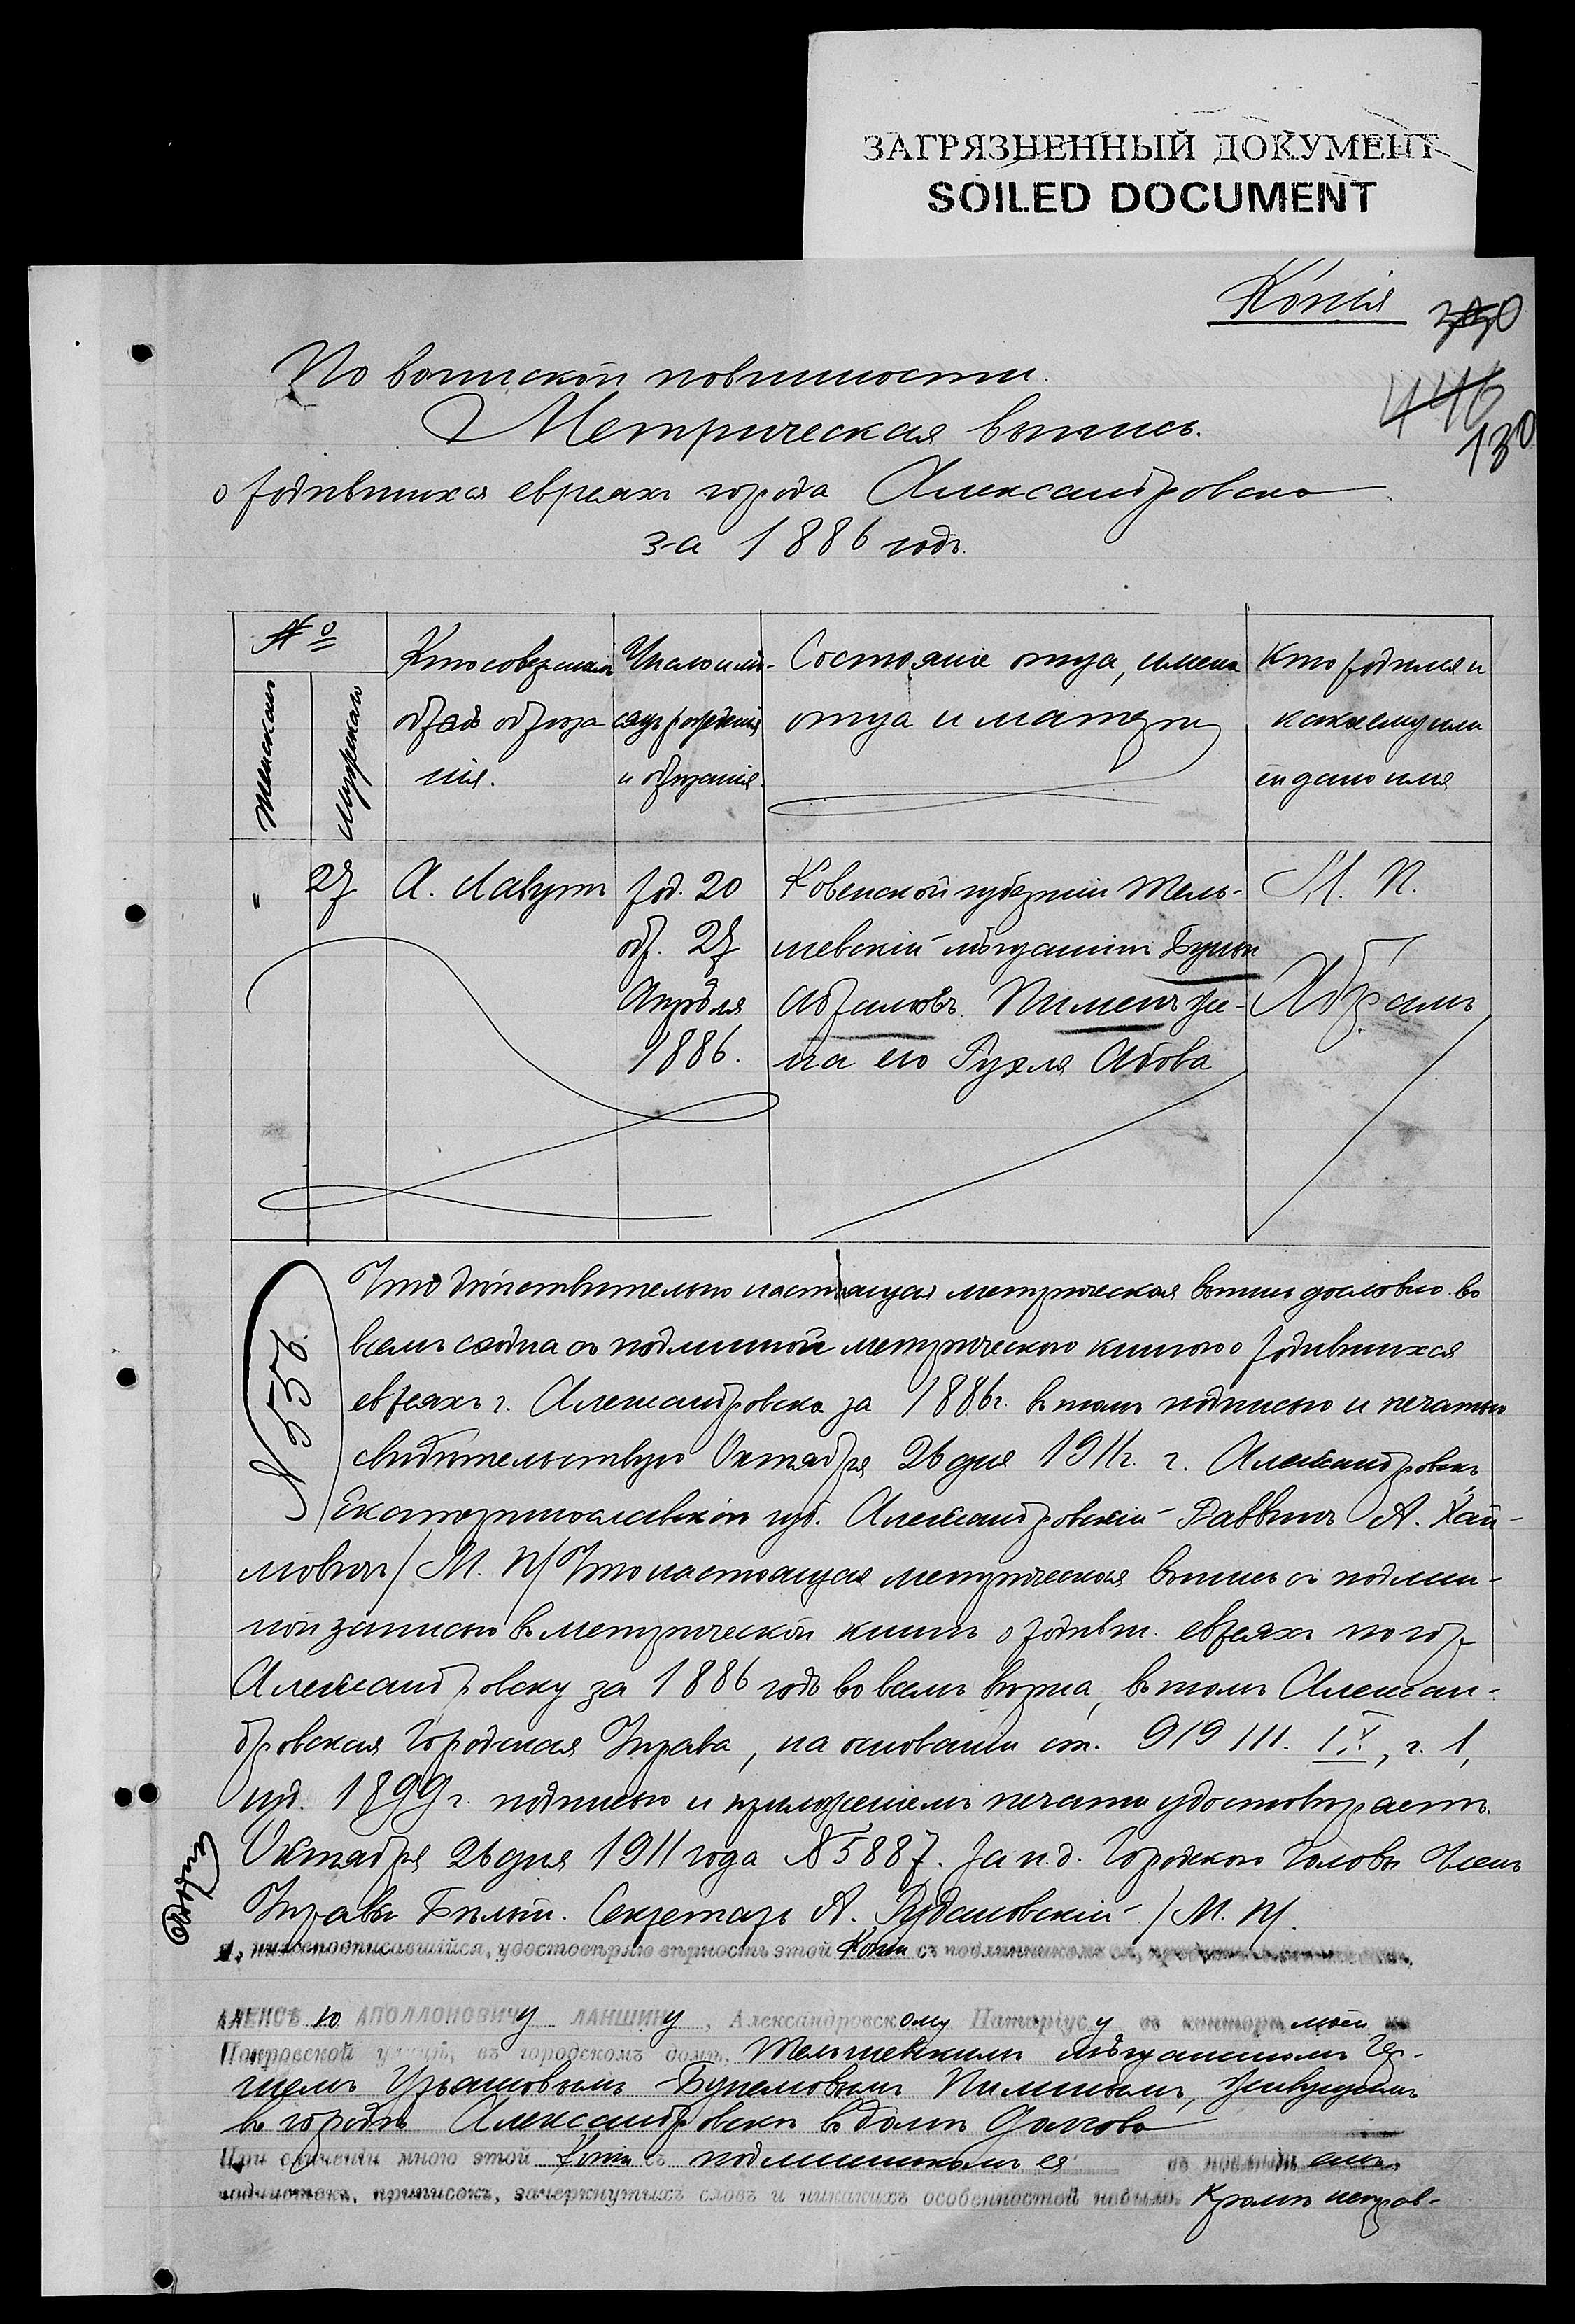 ЗАГРЯЗНЕННЫЙ ДОКУМЕНТ
SOILED DOCUMENT
Копія
130
По воинской повинности.
Метрическая выпись.
о родившихся евреяхъ города Александровска
за 1886 годъ.
№
Женскаго
Мужескаго
Кто совершалъ обрядъ обрѣзанія.
Число и мѣсяцъ рожденія и обрѣзанія.
Состояніе отца, имена отца и матери
Кто родился и какое ему или ей дано имя
" 27 А. Лавутъ род. 20 Ковенской губерніи Тель- М. П.
обр. 27 шевскій мѣщанинъ
Апрѣля Абрамовъ Пименъ же- Абрамъ
1886. на его Рухля Абова
№ 556.
Что дѣйствительно настоящая метрическая выпись дословно во
всемъ сходна съ подлинной метрическою книгою о родившихся
евреяхъ г. Александровска за 1886 г. въ томъ подписью и печатью
свидѣтельствую Октября 26 дня 1911 г. г. Александровскъ
Екатеринославской губ. Александровскій Раввинъ А. Хай-
мовичъ /М. П./ Что настоящая метрическая выпись съ подлин-
ной записью въ метрической книгѣ о родивш. евреяхъ по гор.
Александровску за 1886 годъ во всемъ вѣрна, въ томъ Алексан-
дровская Городская Управа, на основаніи ст. 919 т. IX, ч. 1,
изд. 1899 г. подписью и приложеніемъ печати удостовѣряетъ.
Октября 26 дня 1911 года № 5887. За и. д. Городского Головы Членъ
Управы Бѣлый. Секретарь А. Рудановскій /М. П./.
Я, нижеподписавшійся, удостовѣряю вѣрность этой копіи съ подлинникомъ ея,
АЛЕКСѢю АПОЛЛОНОВИЧу ЛАНШИНу, Александровскому Нотаріусу, въ конторѣ моей на
Покровской улицѣ, въ городскомъ домѣ, Тельшевскимъ мѣщаниномъ Гер-
Пименомъ, живущимъ
въ городѣ Александровскѣ въ домѣ
При сличеніи мною этой копіи съ подлинникомъ ея въ послѣднемъ
подчистокъ, приписокъ, зачеркнутыхъ словъ и никакихъ особенностей не было. Кромѣ исправ-